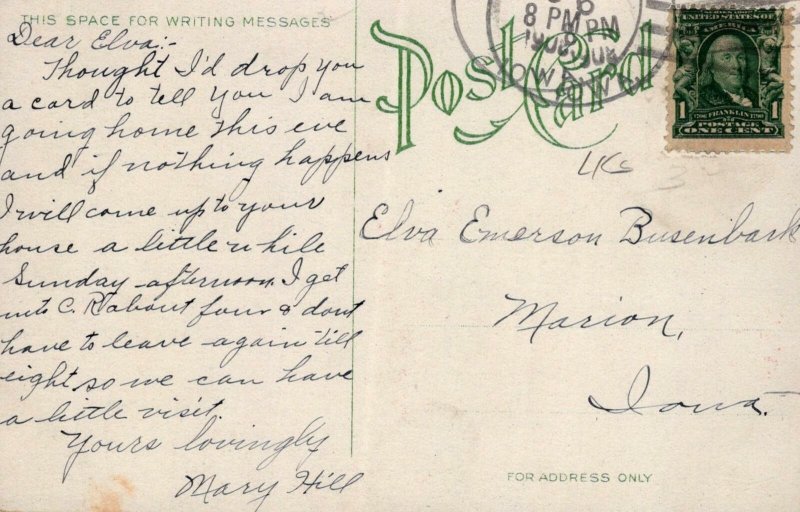 THIS SPACE FOR WRITING MESSAGES
Dear Elva:-
Thought I'd drop you
a card to tell you I am
going home this eve
and if nothing happens
I will come up to your
house a little while
Sunday afternoon. I get
into C. R. about four & dont
have to leave again till
eight, so we can have
a little visit.
Yours lovingly
Mary Hill
Post Card
8 PM PM
1908
IOWA
UNITED STATES OF AMERICA
1
FRANKLIN
POSTAGE
ONE CENT
Elva Emerson Busenbark
Marion,
Iowa.
FOR ADDRESS ONLY